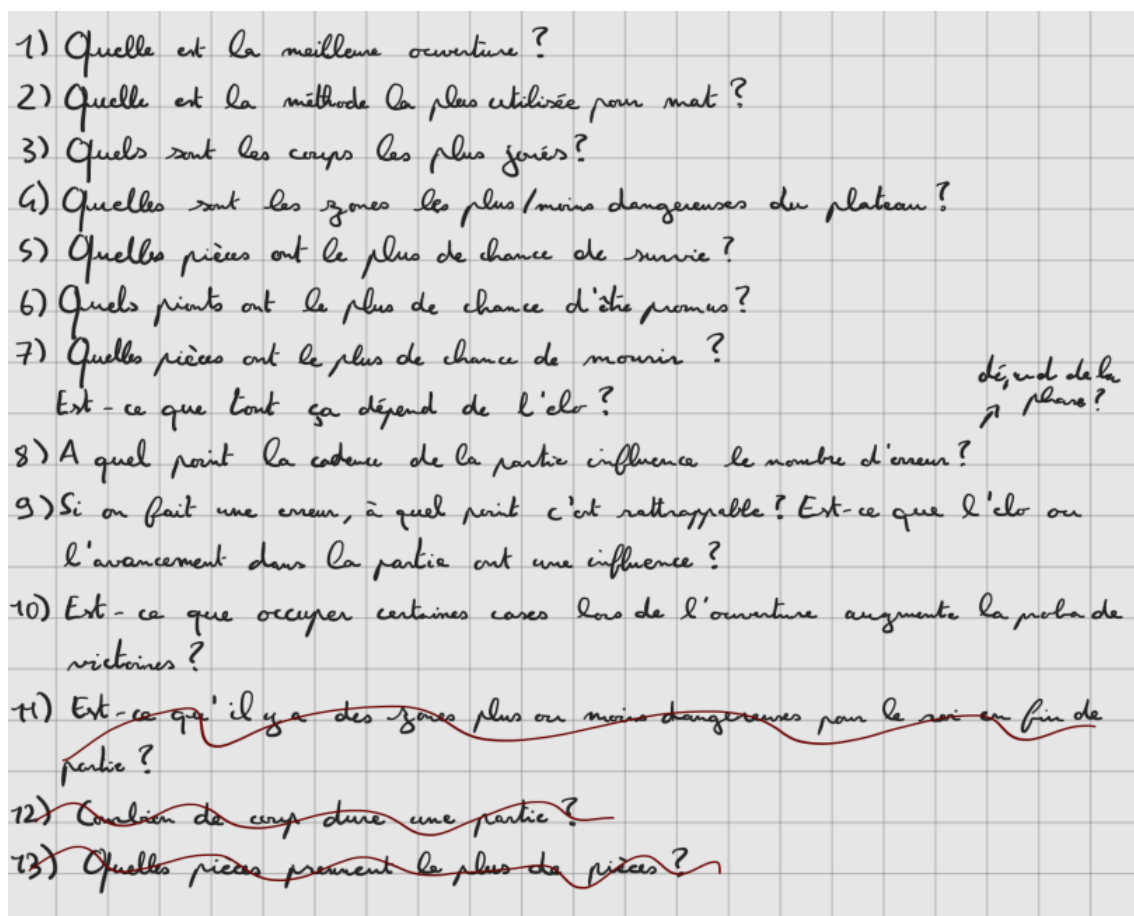 1) Quelle est la meilleure ouverture ?
2) Quelle est la méthode la plus utilisée pour mat ?
3) Quels sont les coups les plus joués ?
4) Quelles sont les zones les plus/moins dangereuses du plateau ?
5) Quelles pièces ont le plus de chance de survie ?
6) Quels pionts ont le plus de chance d'être promus ?
7) Quelles pièces ont le plus de chance de mourir ?
dépend de la
Est-ce que tout ça dépend de l'elo ?
↗ phase ?
8) A quel point la cadence de la partie influence le nombre d'erreur ?
9) Si on fait une erreur, à quel point c'est rattrappable ? Est-ce que l'elo ou
l'avancement dans la partie ont une influence ?
10) Est-ce que occuper certaines cases lors de l'ouverture augmente la proba de
victoires ?
11) Est-ce qu'il y a des zones plus ou moins dangereuses pour le roi en fin de
partie ?
12) Combien de coup dure une partie ?
13) Quelles pieces prennent le plus de pièces ?